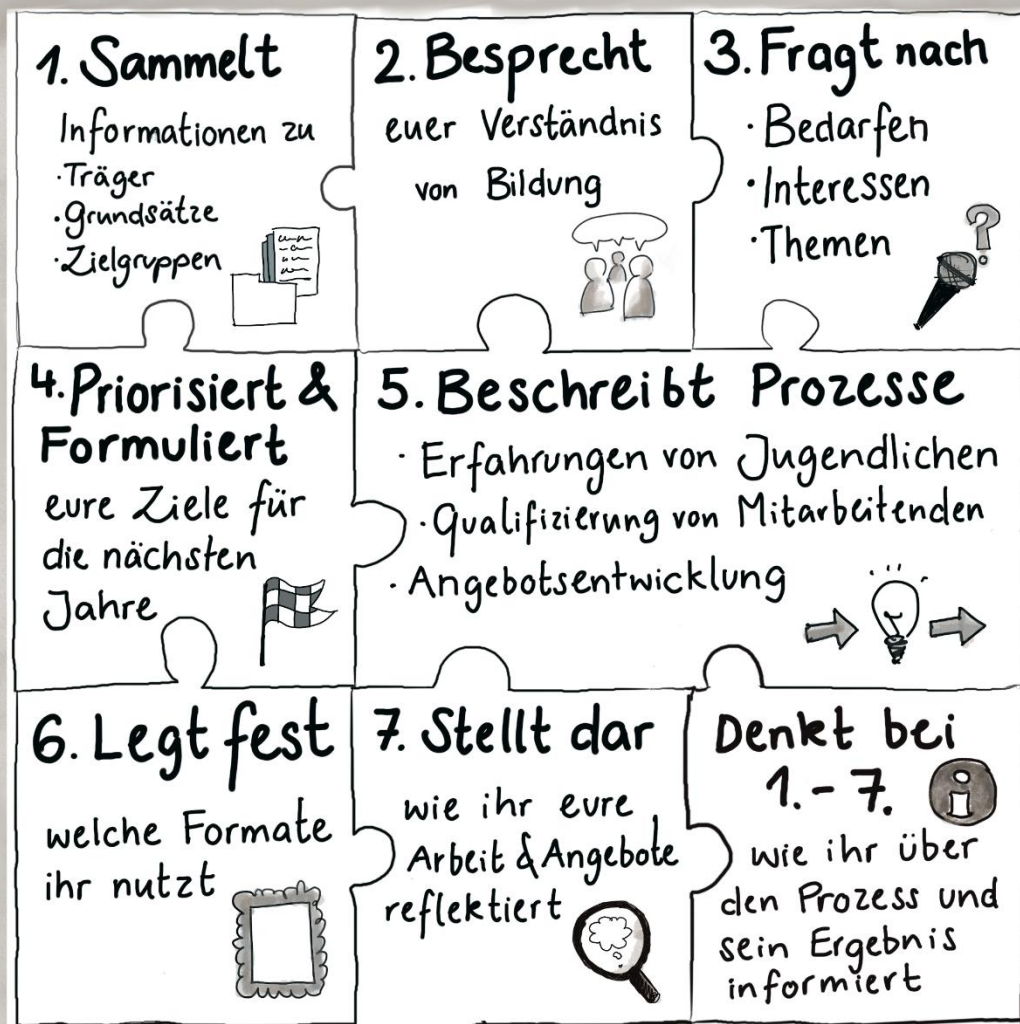 1. Sammelt
Informationen zu
· Träger
· Grundsätze
· Zielgruppen
2. Besprecht
euer Verständnis
von Bildung
3. Fragt nach
· Bedarfen
· Interessen
· Themen
?
4. Priorisiert &
Formuliert
eure Ziele für
die nächsten
Jahre
5. Beschreibt Prozesse
· Erfahrungen von Jugendlichen
· Qualifizierung von Mitarbeitenden
· Angebotsentwicklung
6. Legt fest
welche Formate
ihr nutzt
7. Stellt dar
wie ihr eure
Arbeit & Angebote
reflektiert
Denkt bei
1.-7.
i
wie ihr über
den Prozess und
sein Ergebnis
informiert